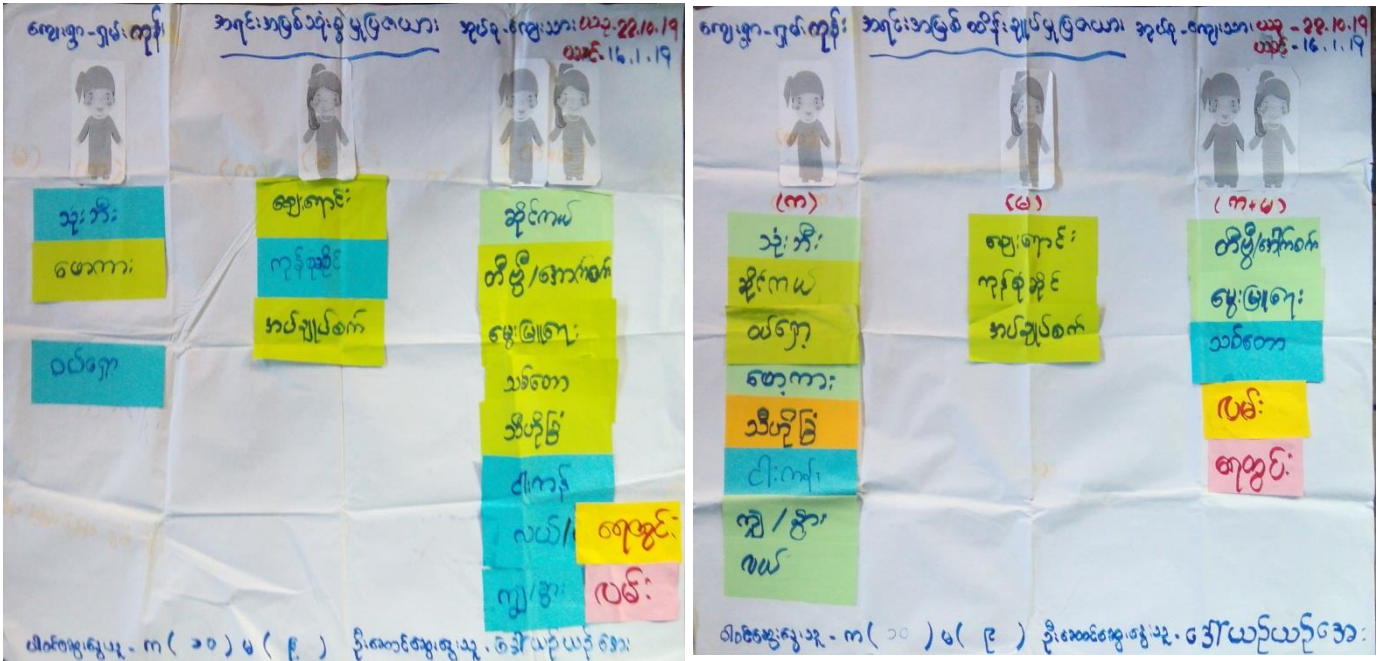 ကျေးရွာ-ရှမ်းကုန်း အရင်းအမြစ်သုံးစွဲမှုပြဇယား အုပ်စု-ကျေးသား ယခု-22.10.19
ယခင်-16.1.19
သုံးဘီး
ဖောကား
ထယ်ရှော့
ဈေးရောင်း
ကုန်စုံဆိုင်
အပ်ချုပ်စက်
ဆိုင်ကယ်
တီဗွီ/အောက်စက်
မွေးမြူရေး
သစ်တော
သီဟိုဠ်ခြံ
ငါးကန်
လယ်/
ရေတွင်း
ကျွဲ/နွား
လမ်း
ပါဝင်ဆွေးနွေးသူ - က ( ၁၀ ) မ ( ၉ ) ဦးဆောင်ဆွေးနွေးသူ - ဒေါ်ယဉ်ယဉ်အေး
ကျေးရွာ-ရှမ်းကုန်း အရင်းအမြစ် ထိန်းချုပ်မှုပြဇယား အုပ်စု-ကျေးသား ယခု-22.10.19
ယခင်-16.1.19
(က)
(မ)
(က+မ)
သုံးဘီး
ဆိုင်ကယ်
ထယ်ရှော့
ဖော့ကား
သီဟိုဠ်ခြံ
ငါးကန်
ကျွဲ/နွား
လယ်
ဈေးရောင်း
ကုန်စုံဆိုင်
အပ်ချုပ်စက်
တီဗွီ/အောက်စက်
မွေးမြူရေး
သစ်တော
လမ်း
ရေတွင်း
ပါဝင်ဆွေးနွေးသူ - က ( ၁၀ ) မ ( ၉ ) ဦးဆောင်ဆွေးနွေးသူ - ဒေါ်ယဉ်ယဉ်အေး